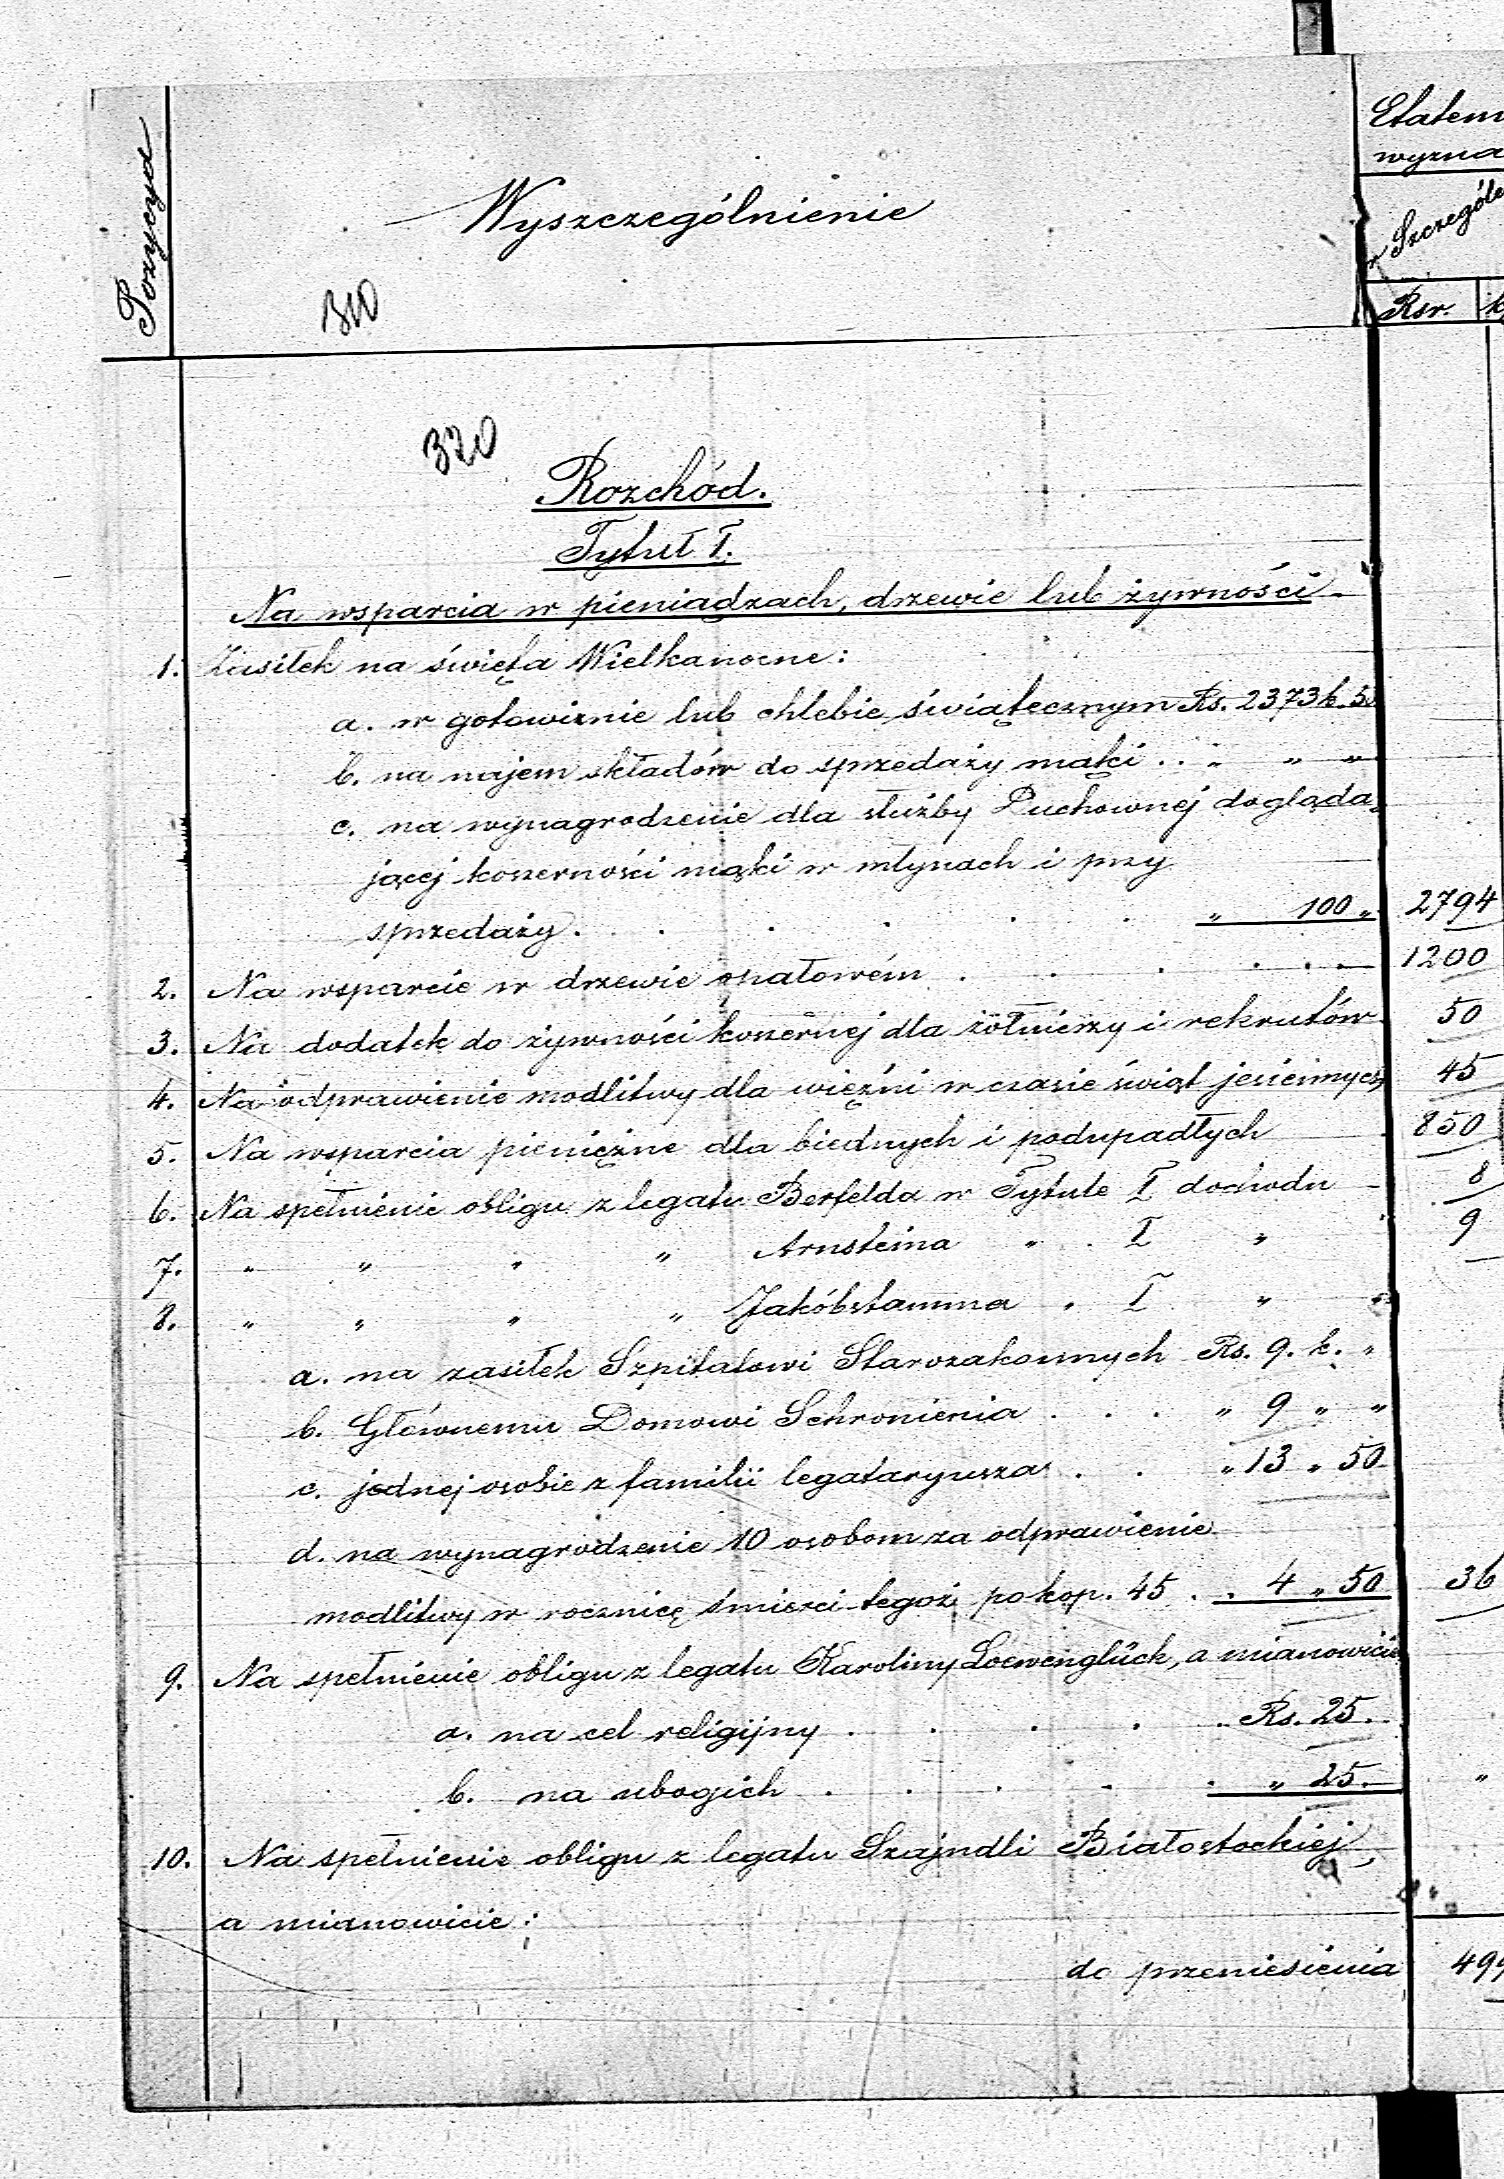 Pozycya
Wyszczególnienie
Etatem
wyzna
w Szczególe
Rsr.
310
320
Rozchód.
Tytuł I.
Na wsparcia w pieniądzach, drzewie lub żywności
1. Zasiłek na święta Wielkanocne:
a. w gotowiznie lub chlebie świątecznym Rs. 2373 k. 50
b. na najem składów do sprzedaży mąki . . " " "
c. na wynagrodzenie dla służby Duchownej dogląda-
jącej koszerności mąki w młynach i przy
sprzedaży . . . . . . " 100 " 2794
2. Na wsparcie w drzewie opałowém . . . . . 1200
3. Na dodatek do żywności koszernej dla żołnierzy i rekrutów 50
4. Na odprawienie modlitwy dla więźni w czasie świąt jesiennych 45
5. Na wsparcia pieniężne dla biednych i podupadłych 850
6. Na spełnienie obligu z legatu Berfelda w Tytule I dochodu 8
7. " " " " Arnsteina " I " 9
8. " " " " Jakóbstamma " I " "
a. na zasiłek Szpitalowi Starozakonnych Rs. 9. k. "
b. Głównemu Domowi Schronienia . . . " 9 " "
c. jednej osobie z familii legataryusza . . " 13 " 50
d. na wynagrodzenie 10 osobom za odprawienie
modlitwy w rocznicę śmierci tegoż po kop. 45 . . 4 " 50 36
9. Na spełnienie obligu z legatu Karoliny Loewenglück, a mianowicie
a. na cel religijny . . . . . Rs. 25.
b. na ubogich . . . . . " 25. "
10. Na spełnienie obligu z legatu Szajndli Białostockiej,
a mianowicie:
do przeniesienia 499